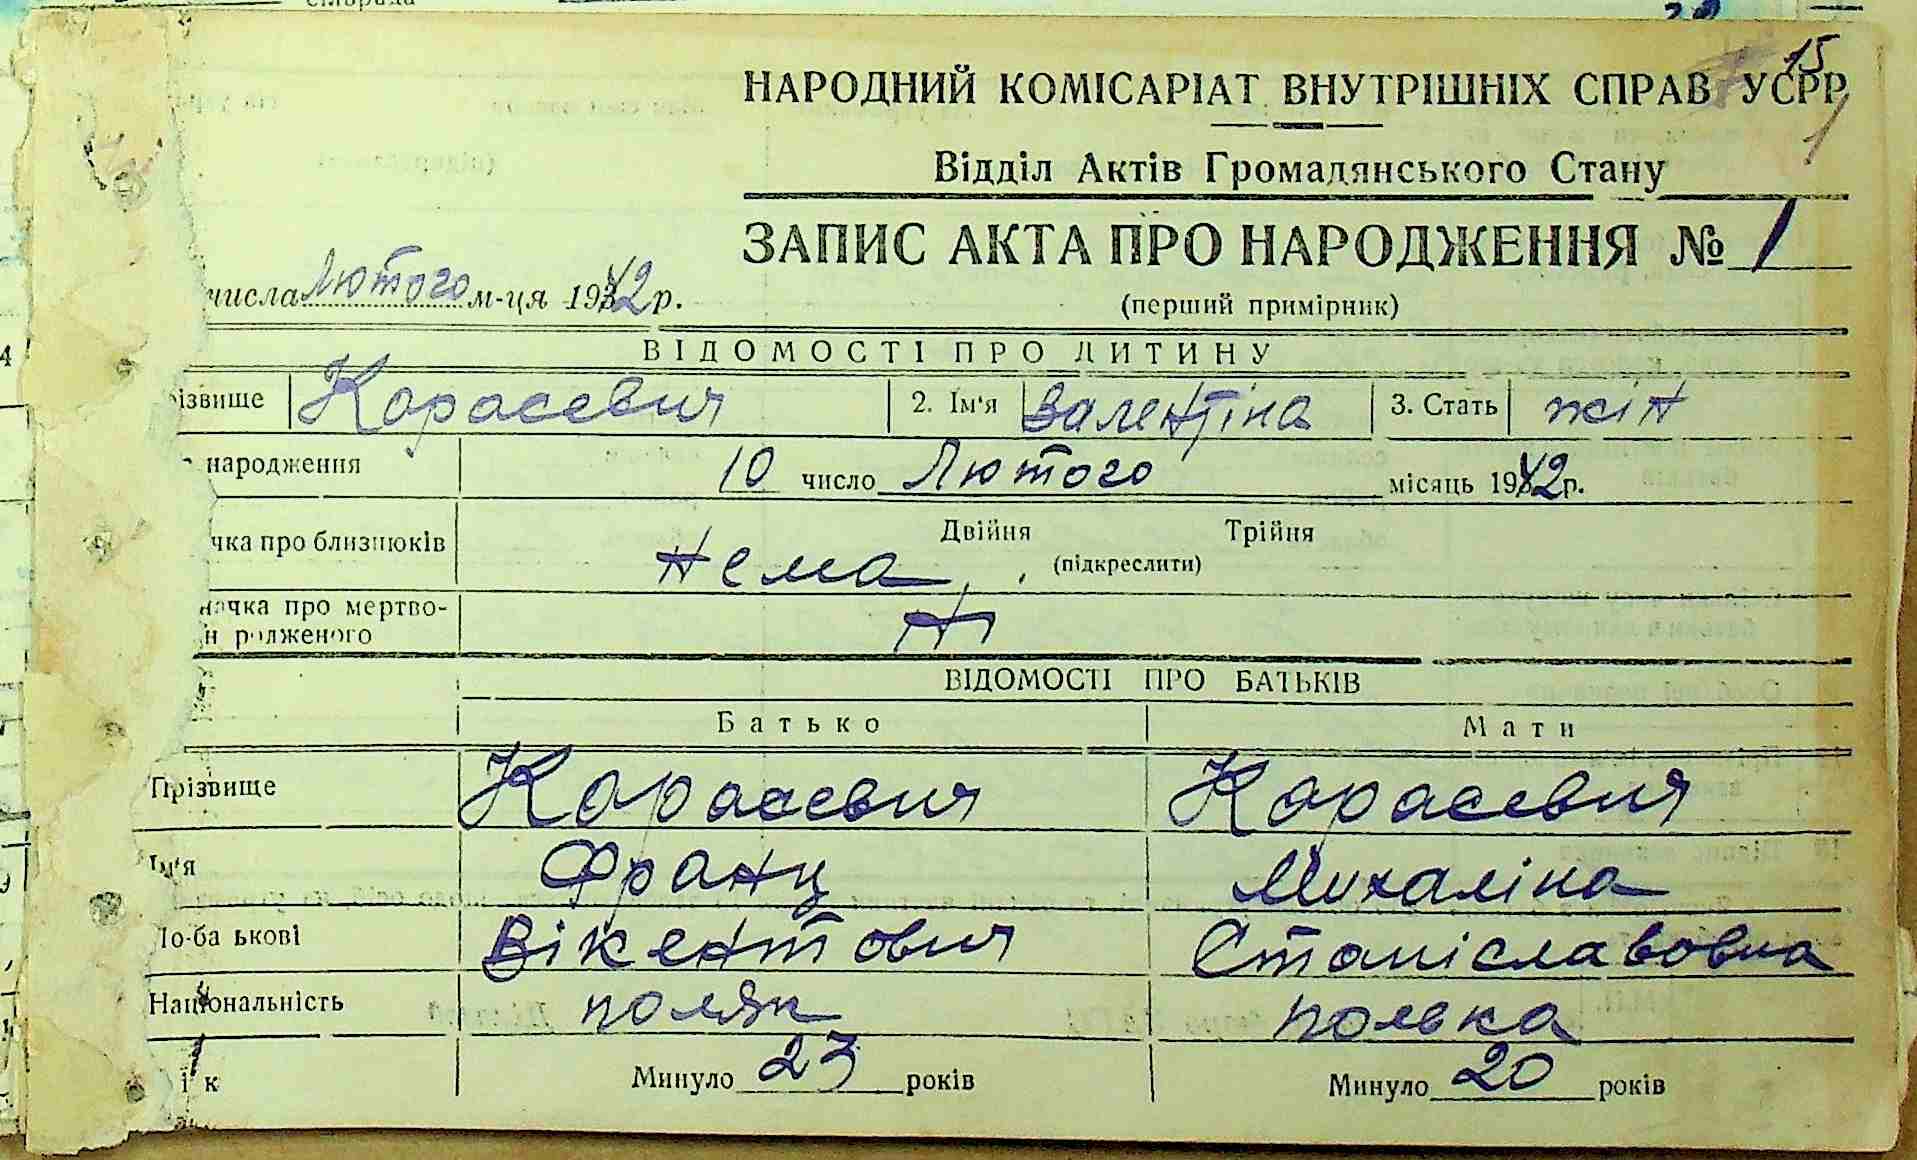 15
1
НАРОДНИЙ КОМІСАРІАТ ВНУТРІШНІХ СПРАВ УСРР
Відділ Актів Громадянського Стану
ЗАПИС АКТА ПРО НАРОДЖЕННЯ № 1
числа Лютого м-ця 1942 р.
(перший примірник)
ВІДОМОСТІ ПРО ДИТИНУ
різвище Карасевич 2. Ім'я Валентіна 3. Стать жін
народження 10 число Лютого місяць 1942 р.
чка про близнюків Нема Двійня Трійня
(підкреслити)
начка про мертво-
н родженого Н
ВІДОМОСТІ ПРО БАТЬКІВ
Батько Мати
Прізвище Карасевич Карасевич
Ім'я Франц Михаліна
По-ба ькові Вікентович Станіславовна
Національність поляк полька
ік Минуло 23 років Минуло 20 років